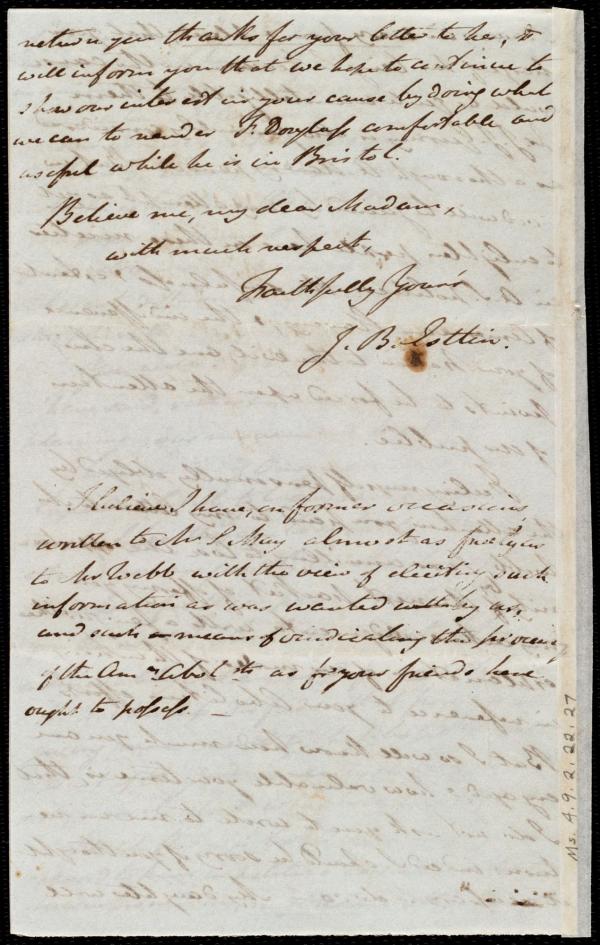 return you thanks for your letter to her, &
will inform you that we hope to continue to
show our interest in your cause by doing what
we can to render F. Douglass comfortable and
useful while he is in Bristol.
Believe me, my dear Madam,
with much respect,
Faithfully Yours
J. B. Estlin.
I believe I have, on former occasions,
written to Mr S. May almost as freely as
to Mr Webb with the view of eliciting such
information as was wanted with by us,
and such a means of vindicating the
of the Amn Abolts as for your friends here
ought to possess. —
Ms. A. 9. 2. 22. 27